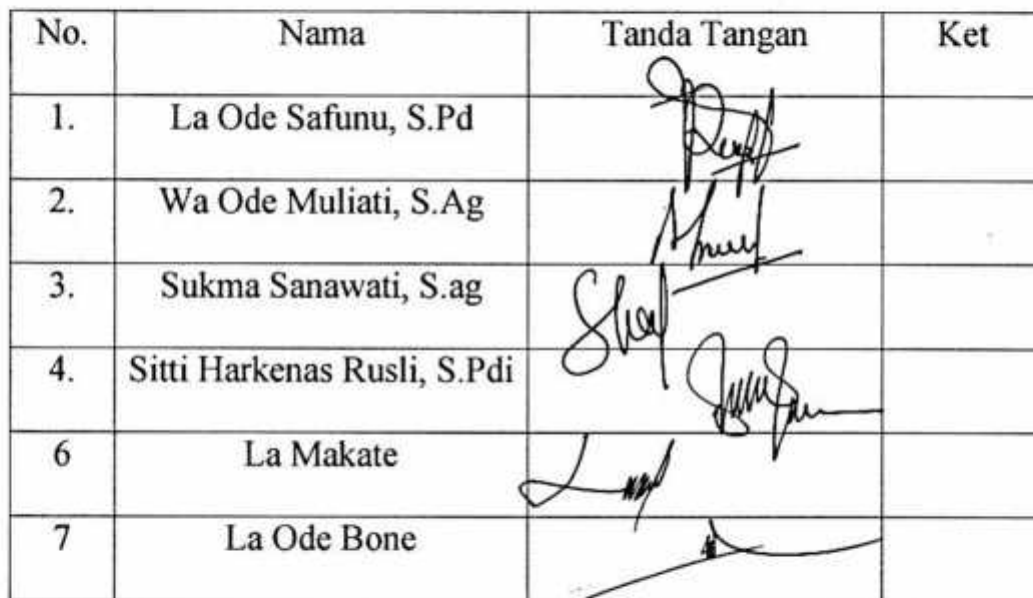 No. Nama Tanda Tangan Ket
1. La Ode Safunu, S.Pd
2. Wa Ode Muliati, S.Ag
3. Sukma Sanawati, S.ag
4. Sitti Harkenas Rusli, S.Pdi
6 La Makate
7 La Ode Bone